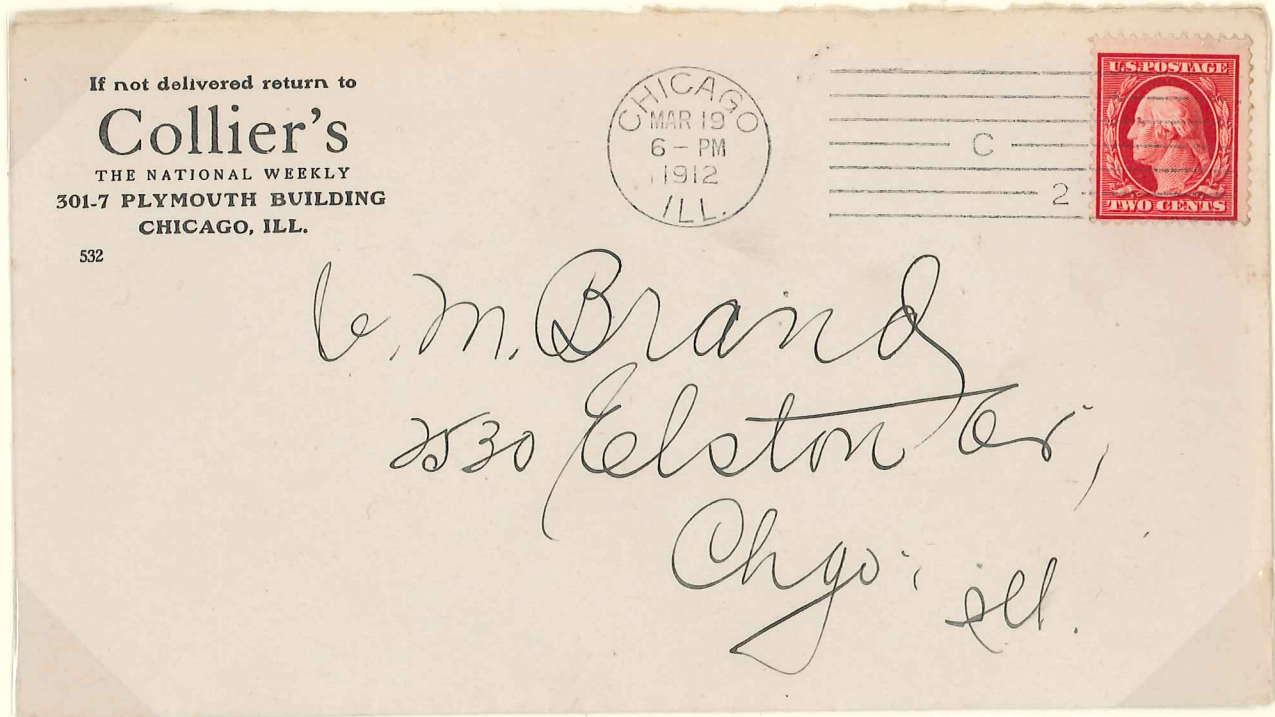 If not delivered return to
Collier's
THE NATIONAL WEEKLY
301-7 PLYMOUTH BUILDING
CHICAGO, ILL.
532
CHICAGO
MAR 19
6 - PM
1912
ILL.
C
2
U.S. POSTAGE
TWO CENTS
M. Brand
2530 Elston
Chgo. Ill.